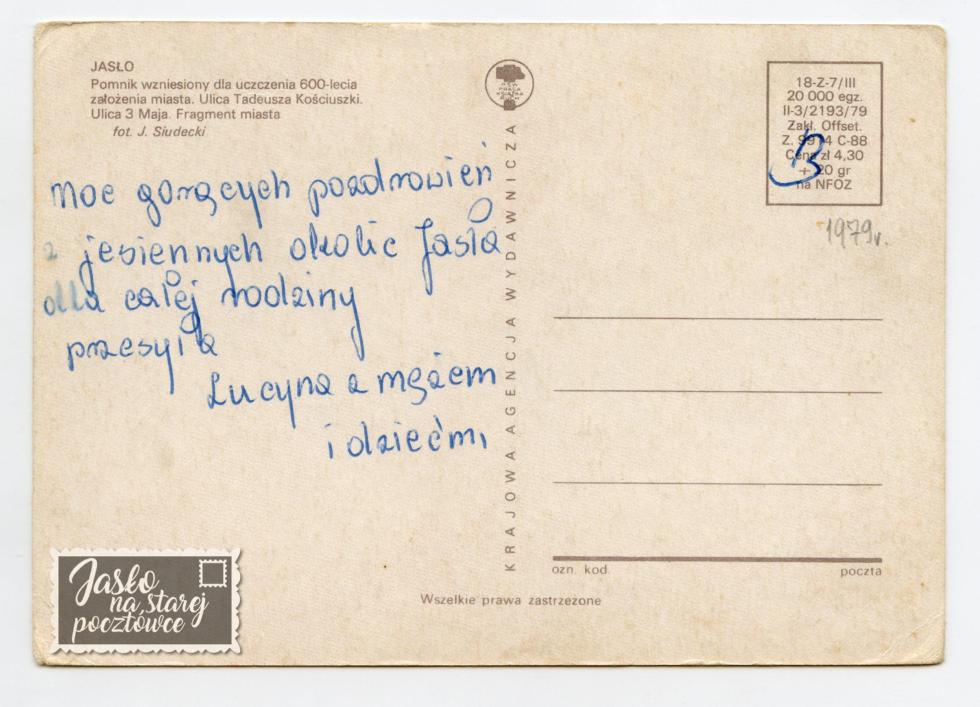 JASŁO
Pomnik wzniesiony dla uczczenia 600-lecia
założenia miasta. Ulica Tadeusza Kościuszki.
Ulica 3 Maja. Fragment miasta
fot. J. Siudecki
Moc gorących pozdrowień
z jesiennych okolic Jasła
dla całej rodziny
przesyła
Lucyna z mężem
i dziećmi
KRAJOWA AGENCJA WYDAWNICZA
RSW
PRASA
KSIĄŻKA
RUCH
18-Z-7/III
20 000 egz.
II-3/2193/79
Zakł. Offset.
Z. 9914 C-88
Cena zł 4,30
+ 20 gr
na NFOZ
B
1979r.
ozn. kod.
poczta
Wszelkie prawa zastrzeżone
Jasło
na starej
pocztówce